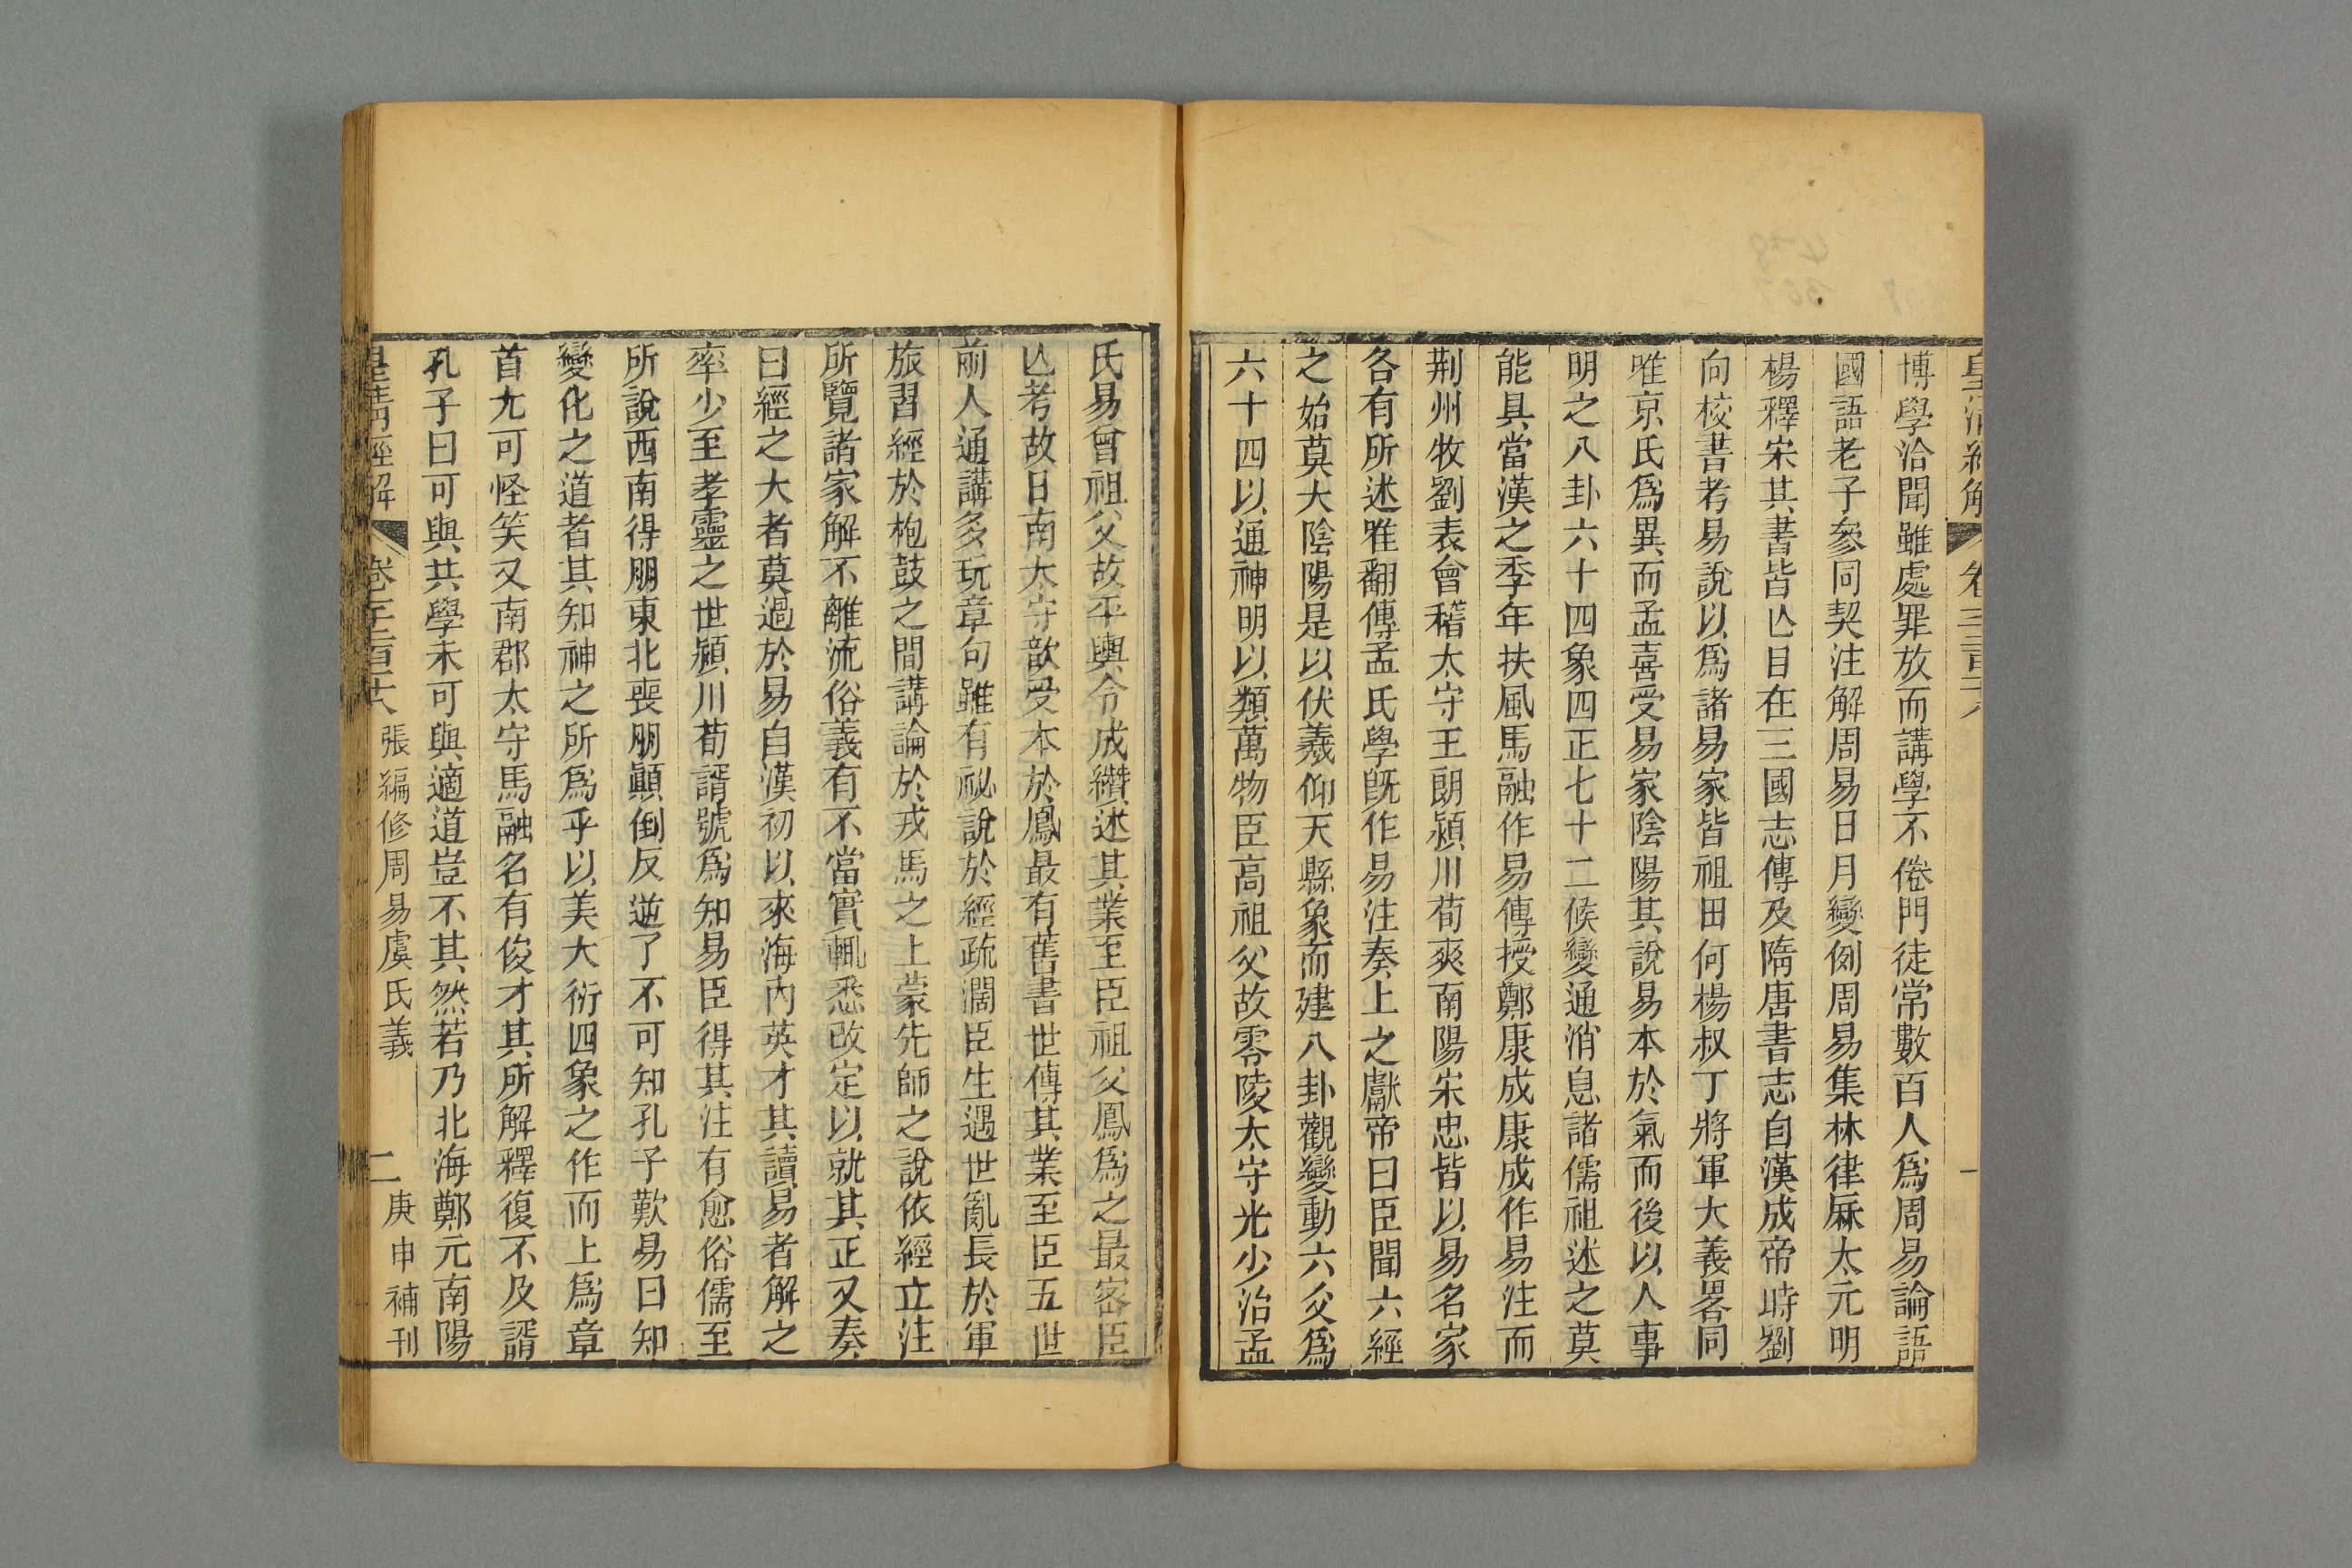 博學洽聞雖處罪放而講學不倦門徒常數百人爲周易論語
國語老子參同契注解周易日月變例周易集林律厤太元明
楊釋宋其書皆亾目在三國志傳及隋唐書志自漢成帝時劉
向校書考易說以爲諸易家皆祖田何楊叔丁將軍大義畧同
唯京氏爲異而孟喜受易家陰陽其說易本於氣而後以人事
明之八卦六十四象四正七十二候變通消息諸儒祖述之莫
能具當漢之季年扶風馬融作易傳授鄭康成康成作易注而
荆州牧劉表會稽太守王朗潁川荀爽南陽宋忠皆以易名家
各有所述唯翻傳孟氏學旣作易注奏上之獻帝曰臣聞六經
之始莫大陰陽是以伏羲仰天縣象而建八卦觀變動六爻爲
六十四以通神明以類萬物臣高祖父故零陵太守光少治孟
氏易曾祖父故平輿令成纘述其業至臣祖父鳳爲之最密臣
亾考故日南太守歆受本於鳳最有舊書世傳其業至臣五世
前人通講多玩章句雖有祕說於經疏濶臣生遇世亂長於軍
旅習經於枹鼓之間講論於戎馬之上蒙先師之說依經立注
所覽諸家解不離流俗義有不當實輒悉改定以就其正又奏
曰經之大者莫過於易自漢初以來海內英才其讀易者解之
率少至孝靈之世潁川荀諝號爲知易臣得其注有愈俗儒至
所說西南得朋東北喪朋顚倒反逆了不可知孔子歎易曰知
變化之道者其知神之所爲乎以美大衍四象之作而上爲章
首尤可怪笑又南郡太守馬融名有俊才其所解釋復不及諝
孔子曰可與共學未可與適道豈不其然若乃北海鄭元南陽
皇淸經解 張編修周易虞氏義 二 庚申補刊